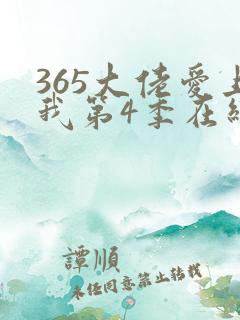 365大佬爱上
我第4季在线
譚順
未经同意禁止转载